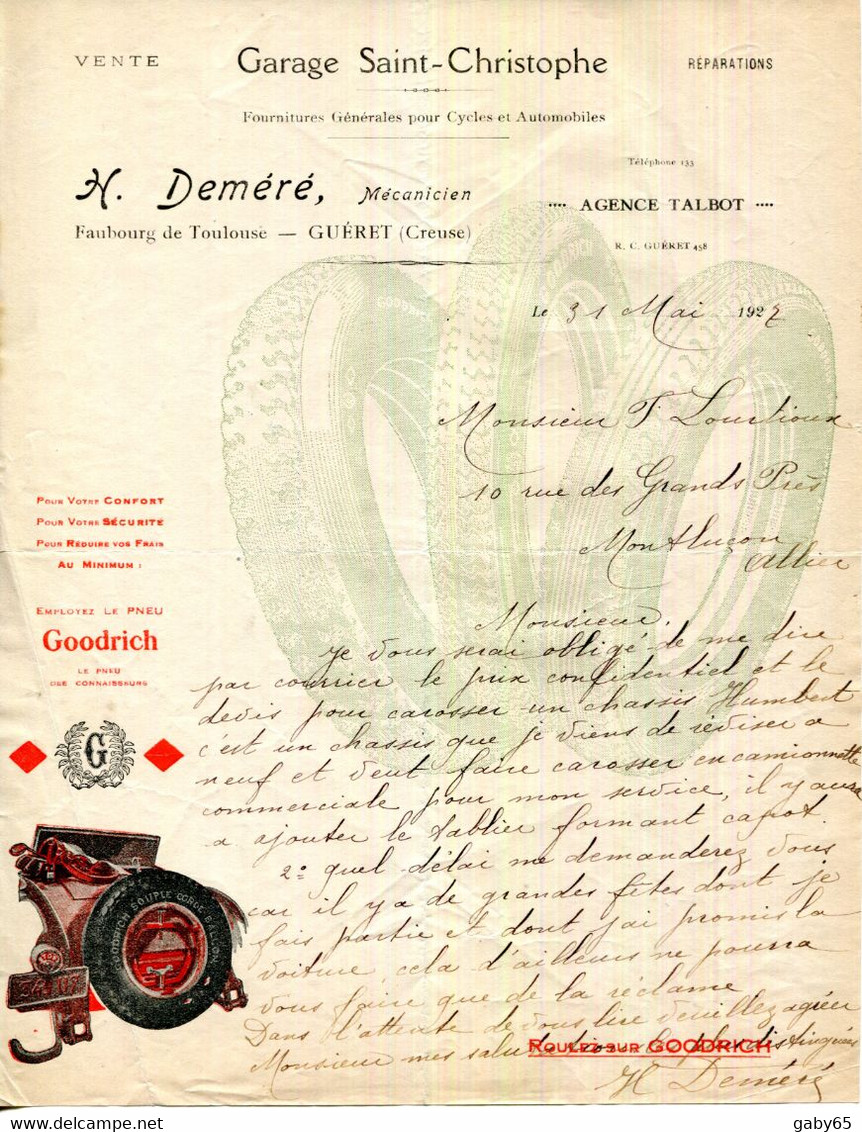 VENTE
Garage Saint-Christophe
RÉPARATIONS
Fournitures Générales pour Cycles et Automobiles
H. Deméré, Mécanicien
Faubourg de Toulouse — GUÉRET (Creuse)
Téléphone 133
.... AGENCE TALBOT ....
R. C. GUÉRET 458
Le 31 Mai 1927
Monsieur T. Lourtioux
10 rue des Grands Près
Montluçon
Allier
POUR VOTRE CONFORT
POUR VOTRE SÉCURITÉ
POUR RÉDUIRE VOS FRAIS
AU MINIMUM :
EMPLOYEZ LE PNEU
Goodrich
LE PNEU
DES CONNAISSEURS
G
GOODRICH SOUPLE CORDE BALLON
GOODRICH
Monsieur,
Je vous serai obligé de me dire
par courrier le prix confidentiel et le
devis pour carosser un chassis Humbert
c'est un chassis que je viens de réviser a
neuf et veut faire carosser en camionnette
commerciale pour mon service, il y aura
a ajouter le tablier formant capot.
2º quel délai me demanderez vous
car il y a de grandes fêtes dont je
fais partie et dont j'ai promis la
voiture, cela d'ailleurs ne pourra
vous faire que de la réclame
Dans l'attente de vous lire veuillez agréer
Monsieur mes salutations les plus distinguées
ROULEZ SUR GOODRICH
H Deméré
gaby65